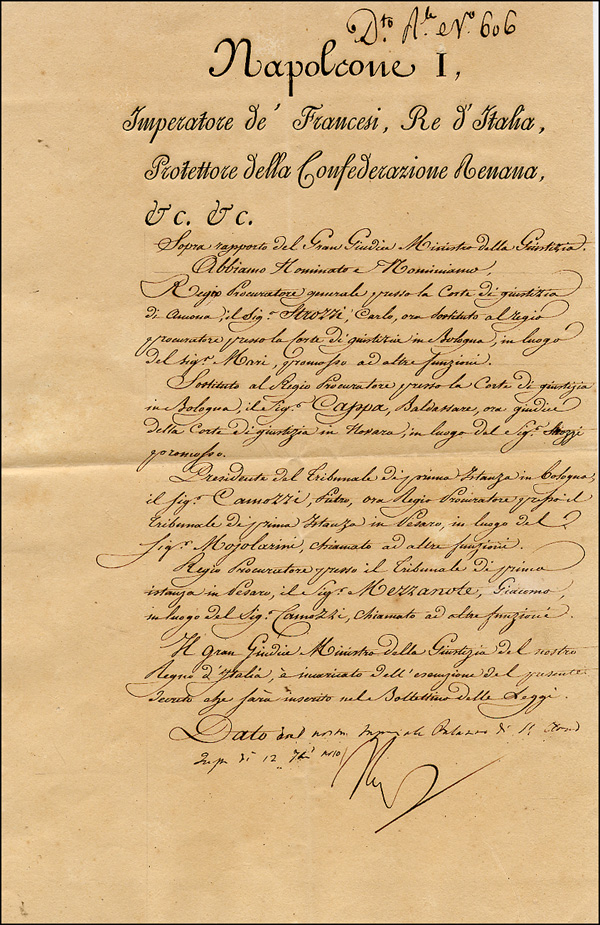 Dto. Ale No 606
Napoleone I,
Imperatore de' Francesi, Re d'Italia,
Protettore della Confederazione Renana,
&c. &c.
Sopra rapporto del Gran Giudice Ministro della Giustizia.
Abbiamo Nominato e Nominiamo,
Regio Procuratore generale presso la Corte di giustizia
di Ancona, il Sigr. Strozzi, Carlo, ora Sostituto al regio
procuratore presso la Corte di giustizia in Bologna, in luogo
del Sigr. Mari, promosso ad altre funzioni.
Sostituto al Regio Procuratore presso la Corte di giustizia
in Bologna, il Sigr. Cappa, Baldassare, ora giudice
della Corte di giustizia in Novara, in luogo del Sigr. Strozzi
promosso.
Presidente del Tribunale di prima Istanza in Bologna,
il Sigr. Camozzi, Pietro, ora Regio Procuratore presso il
Tribunale di prima Istanza in Pesaro, in luogo del
Sigr. Mojolarini, chiamato ad altre funzioni.
Regio Procuratore presso il Tribunale di prima
istanza in Pesaro, il Sigr. Mezzanote, Giacomo,
in luogo del Sigr. Camozzi, chiamato ad altre funzioni.
Il gran Giudice Ministro della Giustizia del nostro
Regno d'Italia, è incaricato dell'esecuzione del presente
decreto che sarà inserito nel Bollettino delle Leggi.
Dato dal nostro Imperiale Palazzo di St. Cloud
di 12